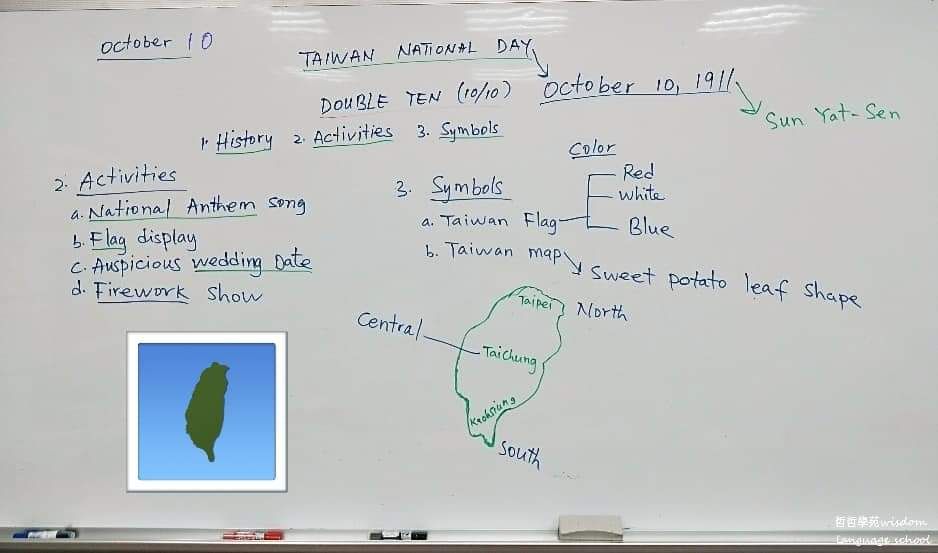 October 10
TAIWAN NATIONAL DAY
DOUBLE TEN (10/10) October 10, 1911
Sun Yat-Sen
1. History 2. Activities 3. Symbols
2. Activities
a. National Anthem song
b. Flag display
c. Auspicious wedding Date
d. Firework show
Color
3. Symbols
Red
White
a. Taiwan Flag
Blue
b. Taiwan map
Sweet potato leaf shape
Taipei
North
Central
Taichung
Kaohsiung
South
哲哲學苑wisdom
language school